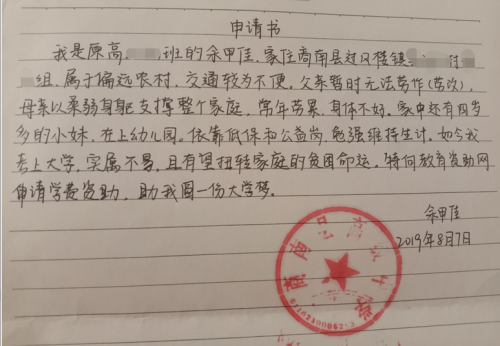 申请书
我是原高 班的余甲佳,家住商南县过风楼镇 村
组,属于偏远农村,交通较为不便。父亲暂时无法劳作(劳改),
母亲以柔弱身躯支撑整个家庭,常年劳累,身体不好。家中还有四岁
多的小妹,在上幼儿园。依靠低保和公益岗,勉强维持生计。如今我
考上大学,实属不易,且有望扭转家庭的贫困命运。特向教育资助网
申请学费资助,助我圆一份大学梦。
余甲佳
2019年8月7日
商南县高级中学